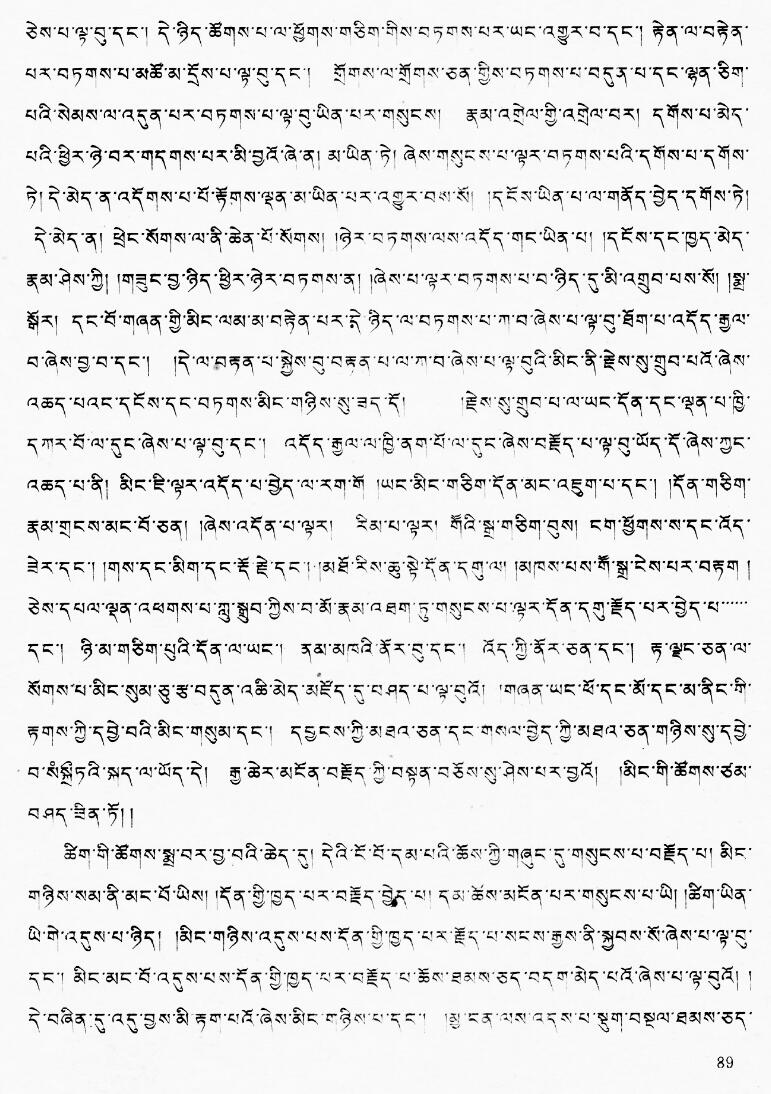 ཅེས་པ་ལྟ་བུ་དང་། དེ་ཉིད་ཚོགས་པ་ལ་ཕྱོགས་གཅིག་གིས་བཏགས་པར་ཡང་འགྱུར་བ་དང་། རྟེན་ལ་བརྟེན་
པར་བཏགས་པ་མཚོ་མ་དྲོས་པ་ལྟ་བུ་དང་། གྲོགས་ལ་གྲོགས་ཅན་གྱིས་བཏགས་པ་བདུན་པ་དང་ལྷན་ཅིག་
པའི་སེམས་ལ་འདུན་པར་བཏགས་པ་ལྟ་བུ་ཡིན་པར་གསུངས། རྣམ་འགྲེལ་གྱི་འགྲེལ་བར། དགོས་པ་མེད་
པའི་ཕྱིར་ཉེ་བར་གདགས་པར་མི་བྱའོ་ཞེ་ན། མ་ཡིན་ཏེ། ཞེས་གསུངས་པ་ལྟར་བཏགས་པའི་དགོས་པ་དགོས་
ཏེ། དེ་མེད་ན་འདོགས་པ་པོ་རྟོགས་ལྡན་མ་ཡིན་པར་འགྱུར་བས་སོ། །དངོས་ཡིན་པ་ལ་གནོད་བྱེད་དགོས་ཏེ།
དེ་མེད་ན། ཕྲེང་སོགས་ལ་ནི་ཆེན་པོ་སོགས། །ཉེར་བཏགས་ལས་འདོད་གང་ཡིན་པ། །དངོས་དང་ཁྱད་མེད་
རྣམ་ཤེས་ཀྱི། །གཟུང་བྱ་ཉིད་ཕྱིར་ཉེར་བཏགས་ན། །ཞེས་པ་ལྟར་བཏགས་པ་བ་ཉིད་དུ་མི་འགྲུབ་པས་སོ། །སྨྲ་
སྒོར། དང་པོ་གཞན་གྱི་མིང་ལམ་མ་བརྟེན་པར་དེ་ཉིད་ལ་བཏགས་པ་ཀ་བ་ཞེས་པ་ལྟ་བུ་ཐོག་པ་འདོད་རྒྱལ་
བ་ཞེས་བྱ་བ་དང་། །དེ་ལ་བརྟན་པ་སྐྱེས་བུ་བརྟན་པ་ལ་ཀ་བ་ཞེས་པ་ལྟ་བུའི་མིང་ནི་རྗེས་སུ་གྲུབ་པའོ་ཞེས་
འཆད་པའང་དངོས་དང་བཏགས་མིང་གཉིས་སུ་ཟད་དོ། །རྗེས་སུ་གྲུབ་པ་ལ་ཡང་དོན་དང་ལྡན་པ་ཁྱི་
དཀར་པོ་ལ་དུང་ཞེས་པ་ལྟ་བུ་དང་། འདོད་རྒྱལ་ལ་ཁྱི་ནག་པོ་ལ་དུང་ཞེས་བརྗོད་པ་ལྟ་བུ་ཡོད་དོ་ཞེས་ཀྱང་
འཆད་པ་ནི། མིང་ཇི་ལྟར་འདོད་པ་བྱེད་ལ་རག་གོ །ཡང་མིང་གཅིག་དོན་མང་འཇུག་པ་དང་། །དོན་གཅིག་
རྣམ་གྲངས་མང་པོ་ཅན། །ཞེས་འདོན་པ་ལྟར། རིམ་པ་ལྟར། གོའི་སྒྲ་གཅིག་བུས། ངག་ཕྱོགས་ས་དང་འོད་
ཟེར་དང་། །གས་དང་མིག་དང་རྡོ་རྗེ་དང་། །མཐོ་རིས་ཆུ་སྟེ་དོན་དགུ་ལ། །མཁས་པས་གོ་སྒྲ་ངེས་པར་བརྟག །
ཅེས་དཔལ་ལྡན་འཕགས་པ་ཀླུ་སྒྲུབ་ཀྱིས་བ་མོ་རྣམ་འཐག་ཏུ་གསུངས་པ་ལྟར་དོན་དགུ་རྗོད་པར་བྱེད་པ་……
དང་། ཉི་མ་གཅིག་པུའི་དོན་ལ་ཡང་། ནམ་མཁའི་ནོར་བུ་དང་། འོད་ཀྱི་ནོར་ཅན་དང་། རྟ་ལྗང་ཅན་ལ་
སོགས་པ་མིང་སུམ་ཅུ་རྩ་བདུན་འཆི་མེད་མཛོད་དུ་བཤད་པ་ལྟ་བུའོ། །གཞན་ཡང་ཕོ་དང་མོ་དང་མ་ནིང་གི་
རྟགས་ཀྱི་དབྱེ་བའི་མིང་གསུམ་དང་། དབྱངས་ཀྱི་མཐའ་ཅན་དང་གསལ་བྱེད་ཀྱི་མཐའ་ཅན་གཉིས་སུ་དབྱེ་
བ་སཾསྐྲྀཏའི་སྐད་ལ་ཡོད་དེ། རྒྱ་ཆེར་མངོན་བརྗོད་ཀྱི་བསྟན་བཅོས་སུ་ཤེས་པར་བྱའོ། །མིང་གི་ཚོགས་ཙམ་
བཤད་ཟིན་ཏོ།།
ཚིག་གི་ཚོགས་སྨྲ་བར་བྱ་བའི་ཆེད་དུ། དེའི་ངོ་བོ་དམ་པའི་ཆོས་ཀྱི་གཞུང་དུ་གསུངས་པ་བརྗོད་པ། མིང་
གཉིས་སམ་ནི་མང་པོ་ཡིས། །དོན་གྱི་ཁྱད་པར་བརྗོད་བྱེད་པ། དམ་ཆོས་མངོན་པར་གསུངས་པ་ཡི། །ཚིག་ཡིན་
ཡི་གེ་འདུས་པ་ཉིད། །མིང་གཉིས་འདུས་པས་དོན་གྱི་ཁྱད་པར་རྗོད་པ་སངས་རྒྱས་ནི་སྐྱབས་སོ་ཞེས་པ་ལྟ་བུ་
དང་། མིང་མང་པོ་འདུས་པས་དོན་གྱི་ཁྱད་པར་བརྗོད་པ་ཆོས་ཐམས་ཅད་བདག་མེད་པའོ་ཞེས་པ་ལྟ་བུའོ། །
དེ་བཞིན་དུ་འདུ་བྱས་མི་རྟག་པའོ་ཞེས་མིང་གཉིས་པ་དང་། །མྱ་ངན་ལས་འདས་པ་སྡུག་བསྔལ་ཐམས་ཅད་
89